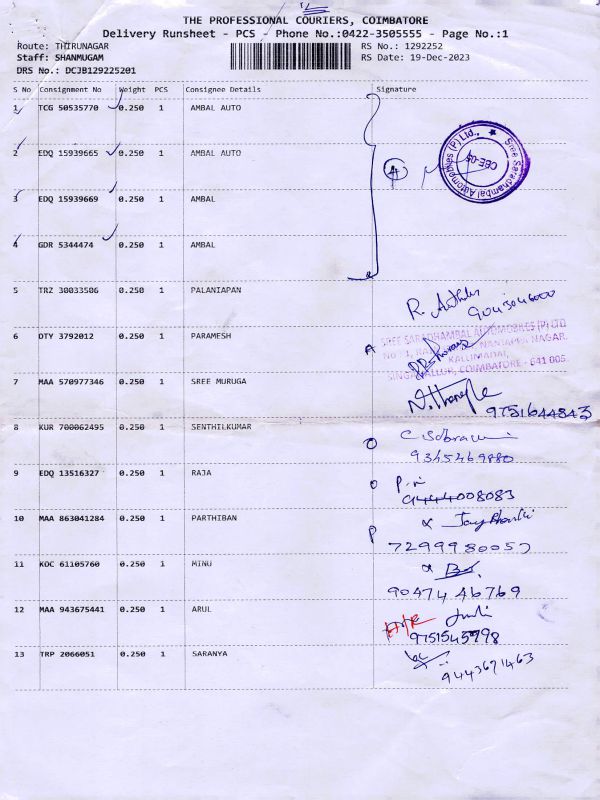 THE PROFESSIONAL COURIERS, COIMBATORE
Delivery Runsheet - PCS - Phone No.:0422-3505555 - Page No.:1
Route: THIRUNAGAR RS No.: 1292252
Staff: SHANMUGAM RS Date: 19-Dec-2023
DRS No.: DCJB129225201
S No Consignment No Weight PCS Consignee Details Signature
1 TCG 50535770 0.250 1 AMBAL AUTO
2 EDQ 15939665 0.250 1 AMBAL AUTO
4
Sree Saradhambal Automobiles (P) Ltd.,
CBE-05
3 EDQ 15939669 0.250 1 AMBAL
4 GDR 5344474 0.250 1 AMBAL
5 TRZ 30033506 0.250 1 PALANIAPAN
6 DTY 3792012 0.250 1 PARAMESH
A SREE SARADHAMBAL AUTOMOBILES (P) LTD
NANJAPPA NAGAR,
KALLIMADAI,
SINGANALLUR, COIMBATORE - 641 005.
7 MAA 570977346 0.250 1 SREE MURUGA
9751644843
8 KUR 700062495 0.250 1 SENTHILKUMAR
O
9345469880
9 EDQ 13516327 0.250 1 RAJA
O
9444008083
10 MAA 863041284 0.250 1 PARTHIBAN
P
7299980057
11 KOC 61105760 0.250 1 MINU
90474 46769
12 MAA 943675441 0.250 1 ARUL
9751545998
13 TRP 2066051 0.250 1 SARANYA
9443671463